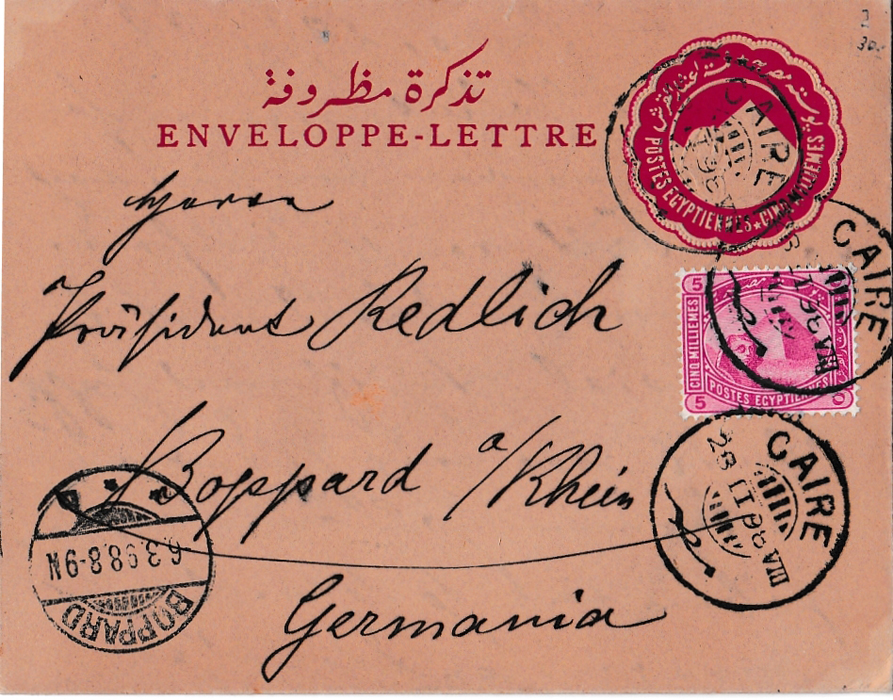 تذكرة مظروفة
ENVELOPPE-LETTRE
POSTES EGYPTIENNES ★ CINQ MILLIEMES
CAIRE
Herrn
Präsident Redlich
CAIRE
28 II 98
5
CINQ MILLIEMES
POSTES EGYPTIENNES
5
Boppard a/Rhein
CAIRE
28 II 98
6.3.98.8-9N
BOPPARD
Germania